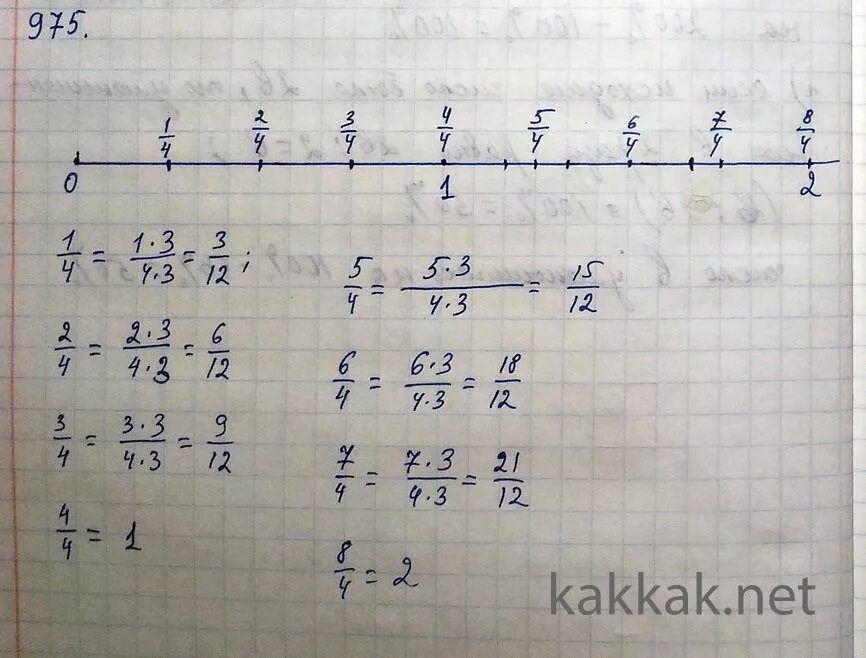 975.
1/4 2/4 3/4 4/4 5/4 6/4 7/4 8/4
0 1 2
1/4 = 1·3/4·3 = 3/12;
2/4 = 2·3/4·3 = 6/12
3/4 = 3·3/4·3 = 9/12
4/4 = 1
5/4 = 5·3/4·3 = 15/12
6/4 = 6·3/4·3 = 18/12
7/4 = 7·3/4·3 = 21/12
8/4 = 2
kakkak.net